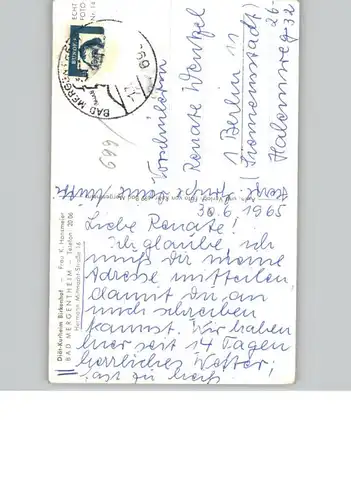 30.6.1965
Liebe Renate!
Ich glaube ich
muß dir meine
Adresse mitteilen,
damit du an
mich schreiben
kannst. Wir haben
hier seit 14 Tagen
herrliches Wetter,
fast zu heiß
Vorschülerin
Renate Wentzel
1 Berlin 11
Halemweg 32
ECHT
FOTO
BAD MERGENTHEIM
699
Diät-Kurheim Birkenhof - Frau K. Hansmeier
BAD MERGENTHEIM - Telefon 2006
Hermann Mittnacht-Straße 16